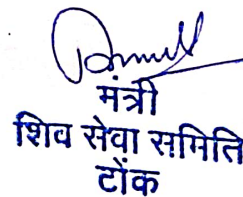 मंत्री
शिव सेवा समिति
टोंक